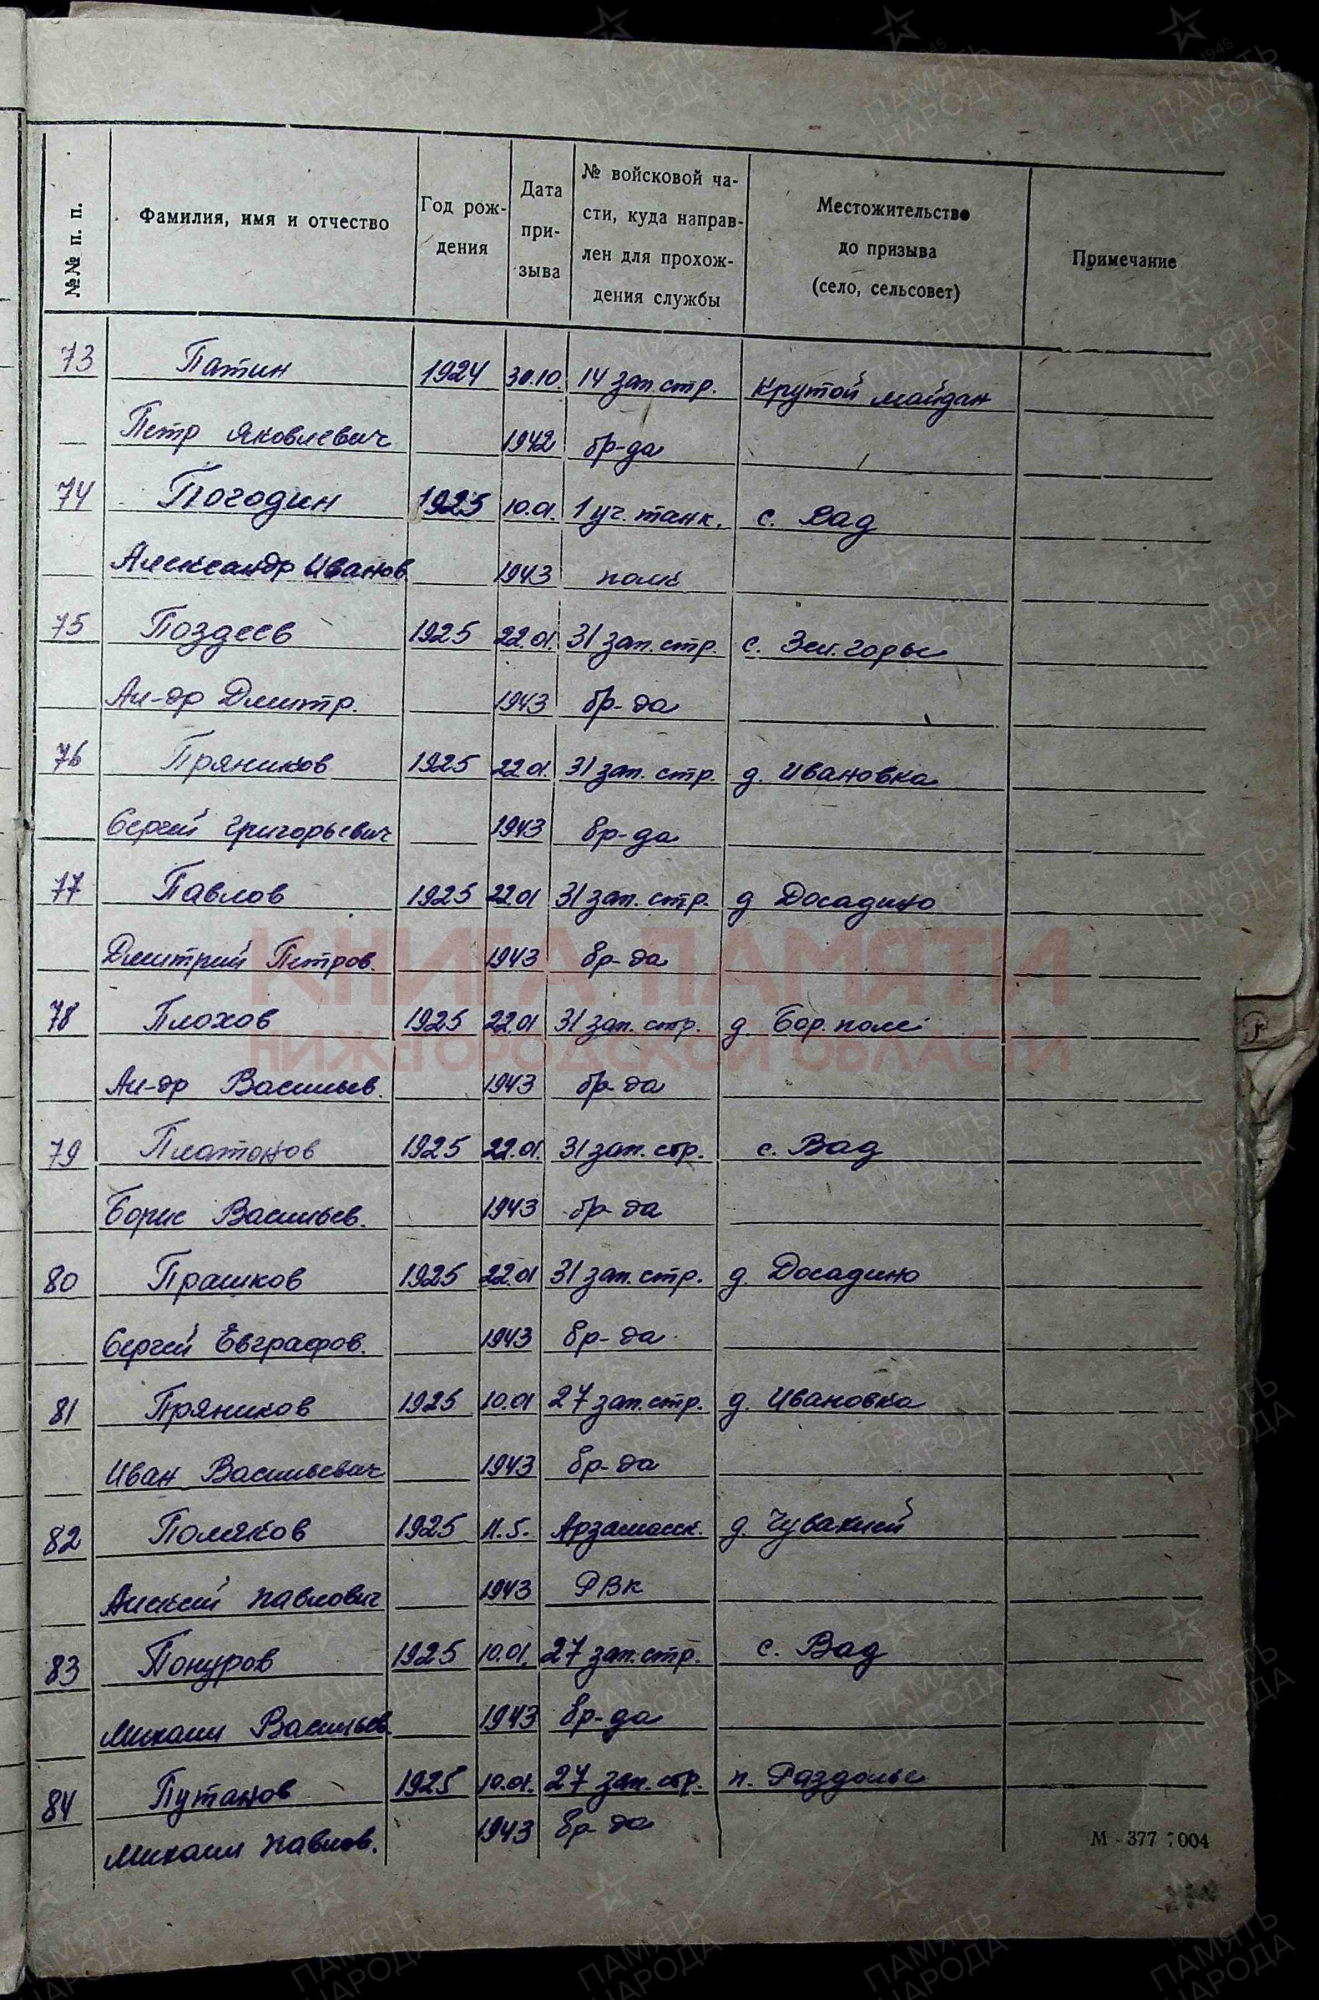 №№ п. п.
Фамилия, имя и отчество
Год рож-
дения
Дата
при-
зыва
№ войсковой ча-
сти, куда направ-
лен для прохож-
дения службы
Местожительство
до призыва
(село, сельсовет)
Примечание
73 Патин 1924 30.10. 14 зап. стр. Крутой майдан
Петр Яковлевич 1942 бр-да
74 Погодин 1925 10.01. 1 уч. танк. с. Вад
Александр Иванов 1943 полк
75 Поздеев 1925 22.01. 31 зап. стр. с. Зел. горы
Ал-др Дмитр. 1943 бр-да
76 Пряников 1925 22.01. 31 зап. стр. д. Ивановка
Сергей Григорьевич 1943 бр-да
77 Павлов 1925 22.01 31 зап. стр. д Досадино
Дмитрий Петров. 1943 бр-да
78 Плохов 1925 22.01 31 зап. стр. д. Бор. поле
Ал-др Васильев. 1943 бр-да
79 Платонов 1925 22.01. 31 зап. стр. с. Вад
Борис Васильев. 1943 бр-да
80 Прашков 1925 22.01 31 зап. стр. д. Досадино
Сергей Евграфов. 1943 бр-да
81 Пряников 1925 10.01 27 зап. стр. д. Ивановка
Иван Васильевич 1943 бр-да
82 Поляков 1925 11.5. Арзамасск. д. Чувахлей
Алексей Павлович 1943 РВК
83 Понуров 1925 10.01. 27 зап. стр. с. Вад
Михаил Васильев. 1943 бр-да
84 Путанов 1925 10.01. 27 зап. стр. п. Раздолье
Михаил Павлов. 1943 бр-да
М-377 7004
КНИГА ПАМЯТИ
НИЖЕГОРОДСКОЙ ОБЛАСТИ
ПАМЯТЬ
НАРОДА